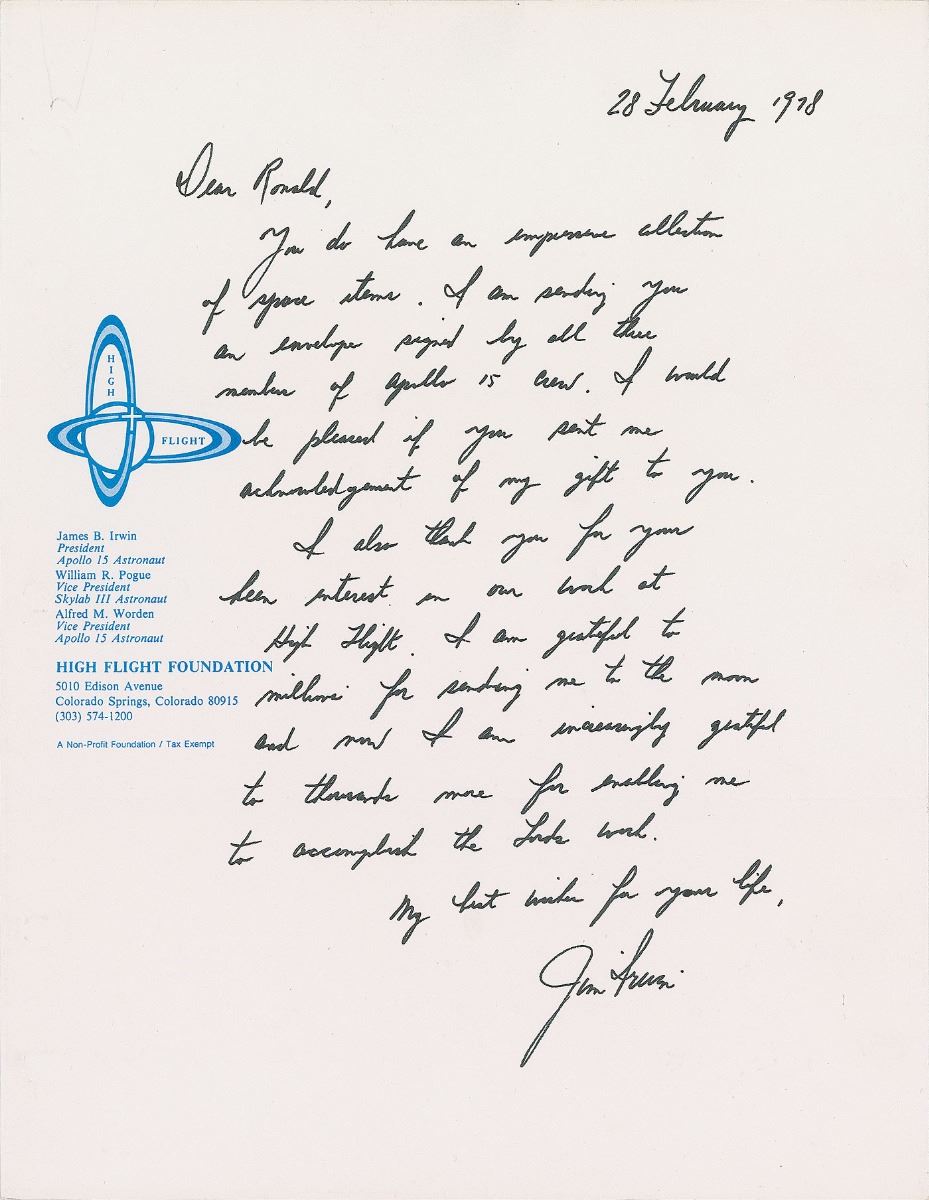 28 February 1978
Dear Ronald,
You do have an impressive collection
of space items. I am sending you
an envelope signed by all three
members of Apollo 15 crew. I would
be pleased if you sent me
acknowledgement of my gift to you.
I also thank you for your
keen interest in our work at
High Flight. I am grateful to
millions for sending me to the moon
and now I am increasingly grateful
to thousands more for enabling me
to accomplish the Lords work.
My best wishes for your life,
Jim Irwin
HIGH
FLIGHT
James B. Irwin
President
Apollo 15 Astronaut
William R. Pogue
Vice President
Skylab III Astronaut
Alfred M. Worden
Vice President
Apollo 15 Astronaut
HIGH FLIGHT FOUNDATION
5010 Edison Avenue
Colorado Springs, Colorado 80915
(303) 574-1200
A Non-Profit Foundation / Tax Exempt